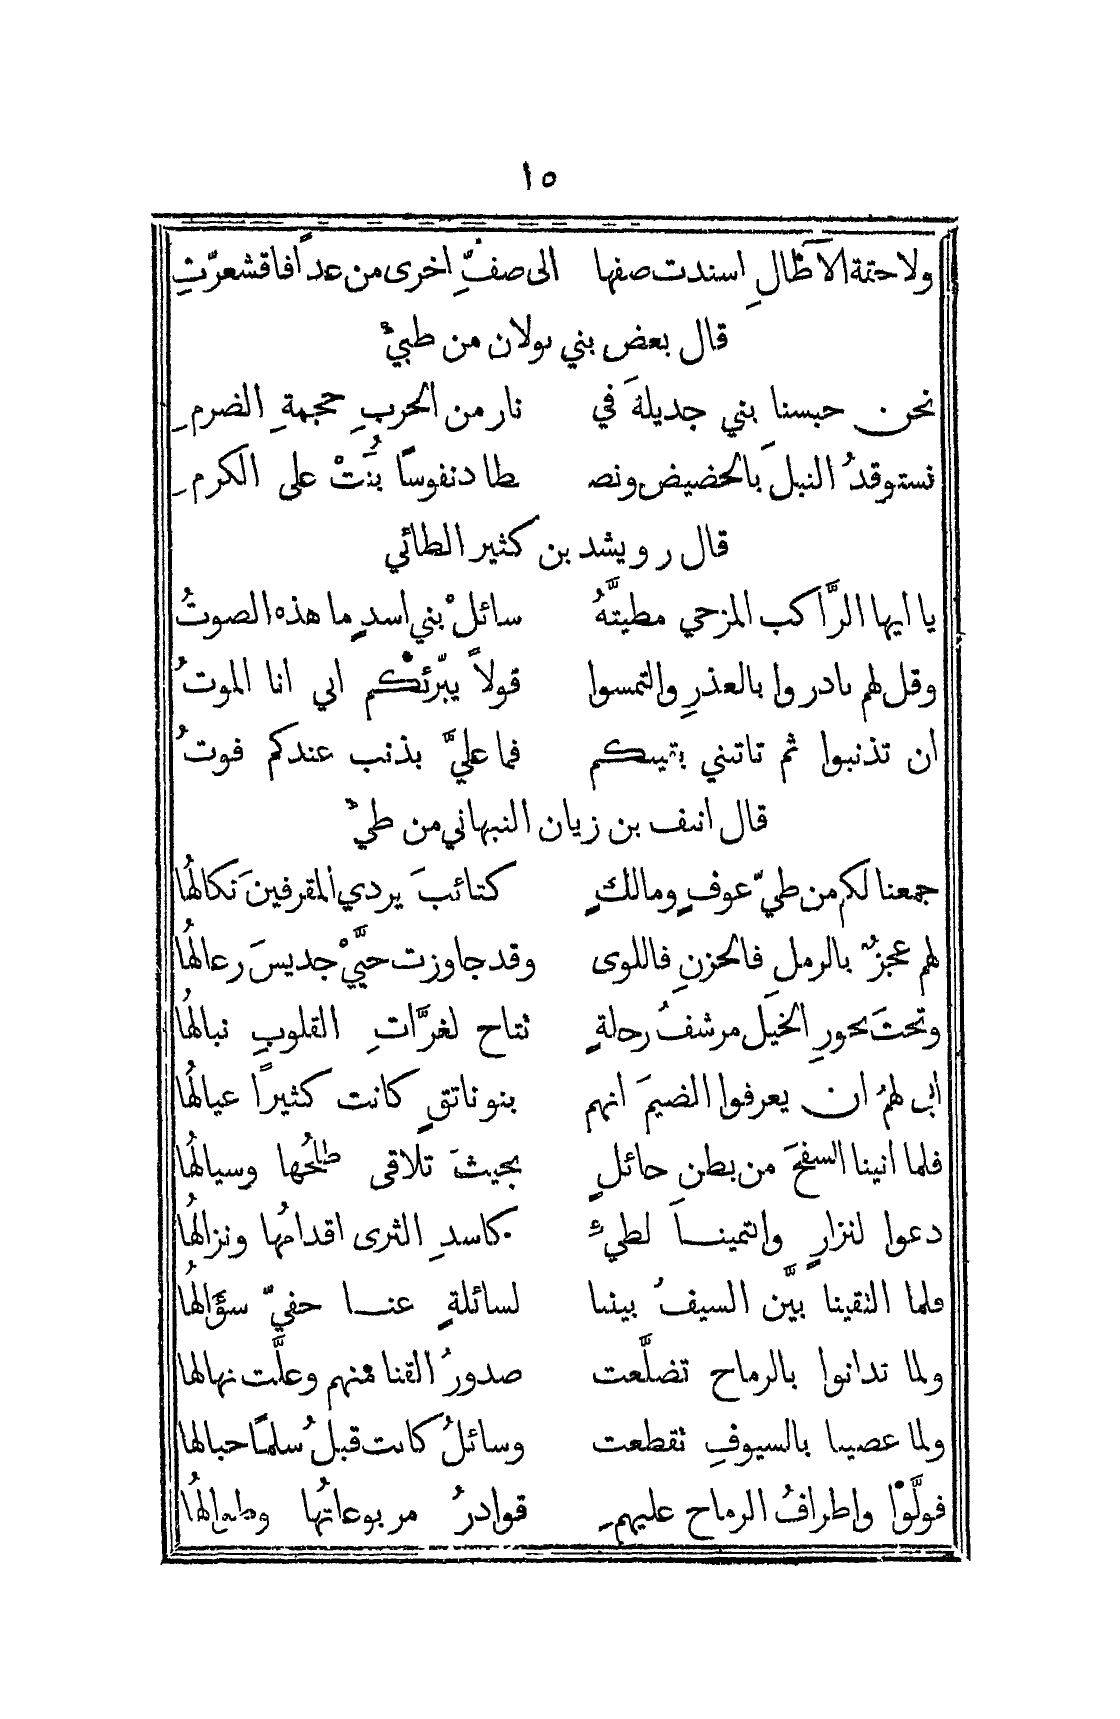 ١٥
ولاحقة الآطال اسندت صفها الى صفِّ اخرى من عداً فاقشعرّتِ
قال بعض بني بولان من طيئ
نحن حبسنا بني جديلةَ في نار من الحربِ جحمةِ الضرمِ
نستوقدُ النبلَ بالحضيض ونصـ ـطاد نفوساً بُنَتْ على الكرمِ
قال رويشد بن كثير الطائي
يا ايها الرَّاكب المزجي مطيتَّهُ سائلْ بني اسدٍ ما هذه الصوتُ
وقل لهم بادروا بالعذرِ والتمسوا قولاً يبّرئكْم اني انا الموتُ
ان تذنبوا ثم تاتيني بقيتكم فما عليَّ بذنب عندكم فوتُ
قال انيف بن زيان النبهاني من طيئ
جمعنا لكم من طيّ عوفٍ ومالكٍ كتائبَ يردي المقرفينَ نكالهُا
لهم عجزٌ بالرمل فالحزنِ فاللوى وقد جاوزت حيَّيْ جديسَ رعالهُا
وتحتَ نحورِ الخيَل مرشفُ رحلةٍ تتاح لغرَّاتِ القلوبِ نبالهُا
ابى لهمُ ان يعرفوا الضيمَ انهم بنو ناتقٍ كانت كثيراً عيالهُا
فلما اتينا السفحَ من بطن حائلٍ بحيثَ تلاقى طلحُها وسيالهُا
دعوا لنزارٍ وانتمينـا لطيئ كاسدِ الثرى اقدامُها ونزالهُا
فلما التقينا بيَّن السيفُ بيننا لسائلةٍ عنـا حفيّ سؤالهُا
ولما تدانوا بالرماح تضلَّعت صدورُ القنا منهم وعلَّت نهالها
ولما عصينا بالسيوفِ تقطعت وسائلُ كانت قبلُ سلماً حبالها
فولَّوْا واطرافُ الرماح عليهمِ قوادرُ مربوعاتُها وطوالهُا